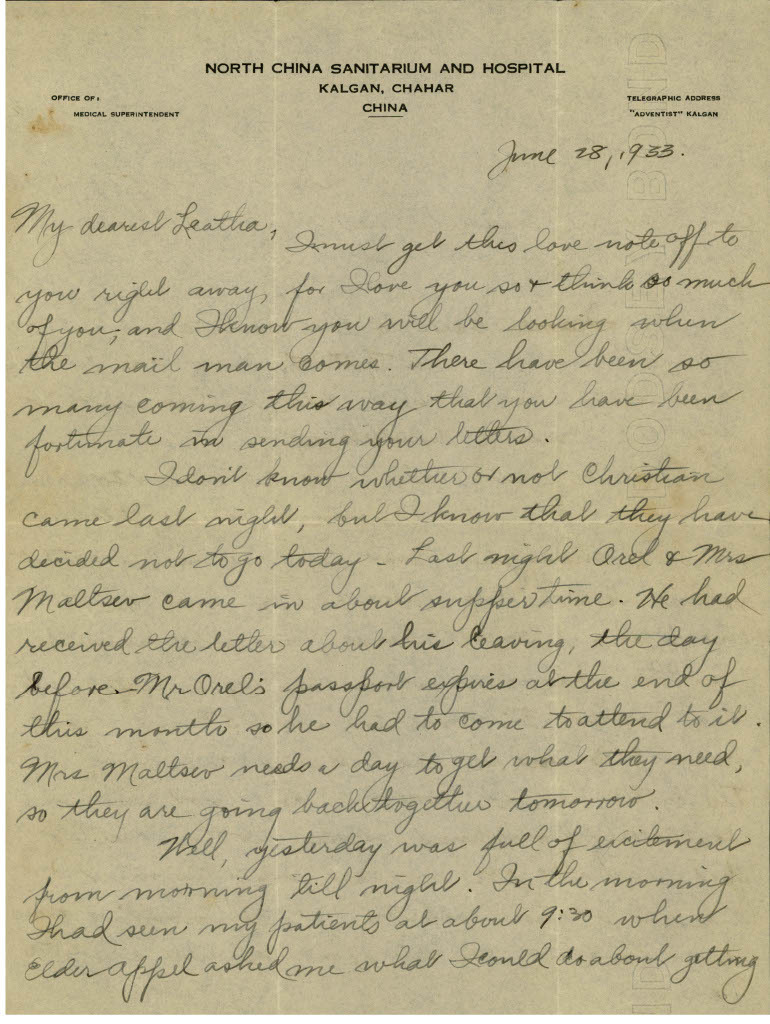 NORTH CHINA SANITARIUM AND HOSPITAL
KALGAN, CHAHAR
CHINA
OFFICE OF:
MEDICAL SUPERINTENDENT
TELEGRAPHIC ADDRESS
"ADVENTIST" KALGAN
June 28, 1933.
My dearest Leatha,
I must get this love note off to
you right away, for I love you so & think so much
of you, and I know you will be looking when
the mail man comes. There have been so
many coming this way that you have been
fortunate in sending your letters.
I don't know whether or not Christian
came last night, but I know that they have
decided not to go today - Last night Orel & Mrs
Maltsev came in about supper time. He had
received the letter about his leaving, the day
before. Mr Orel's passport expires at the end of
this month so he had to come to attend to it.
Mrs Maltsev needs a day to get what they need,
so they are going back together tomorrow.
Well, yesterday was full of excitement
from morning till night. In the morning
I had seen my patients at about 9:30 when
Elder Appel asked me what I could do about getting